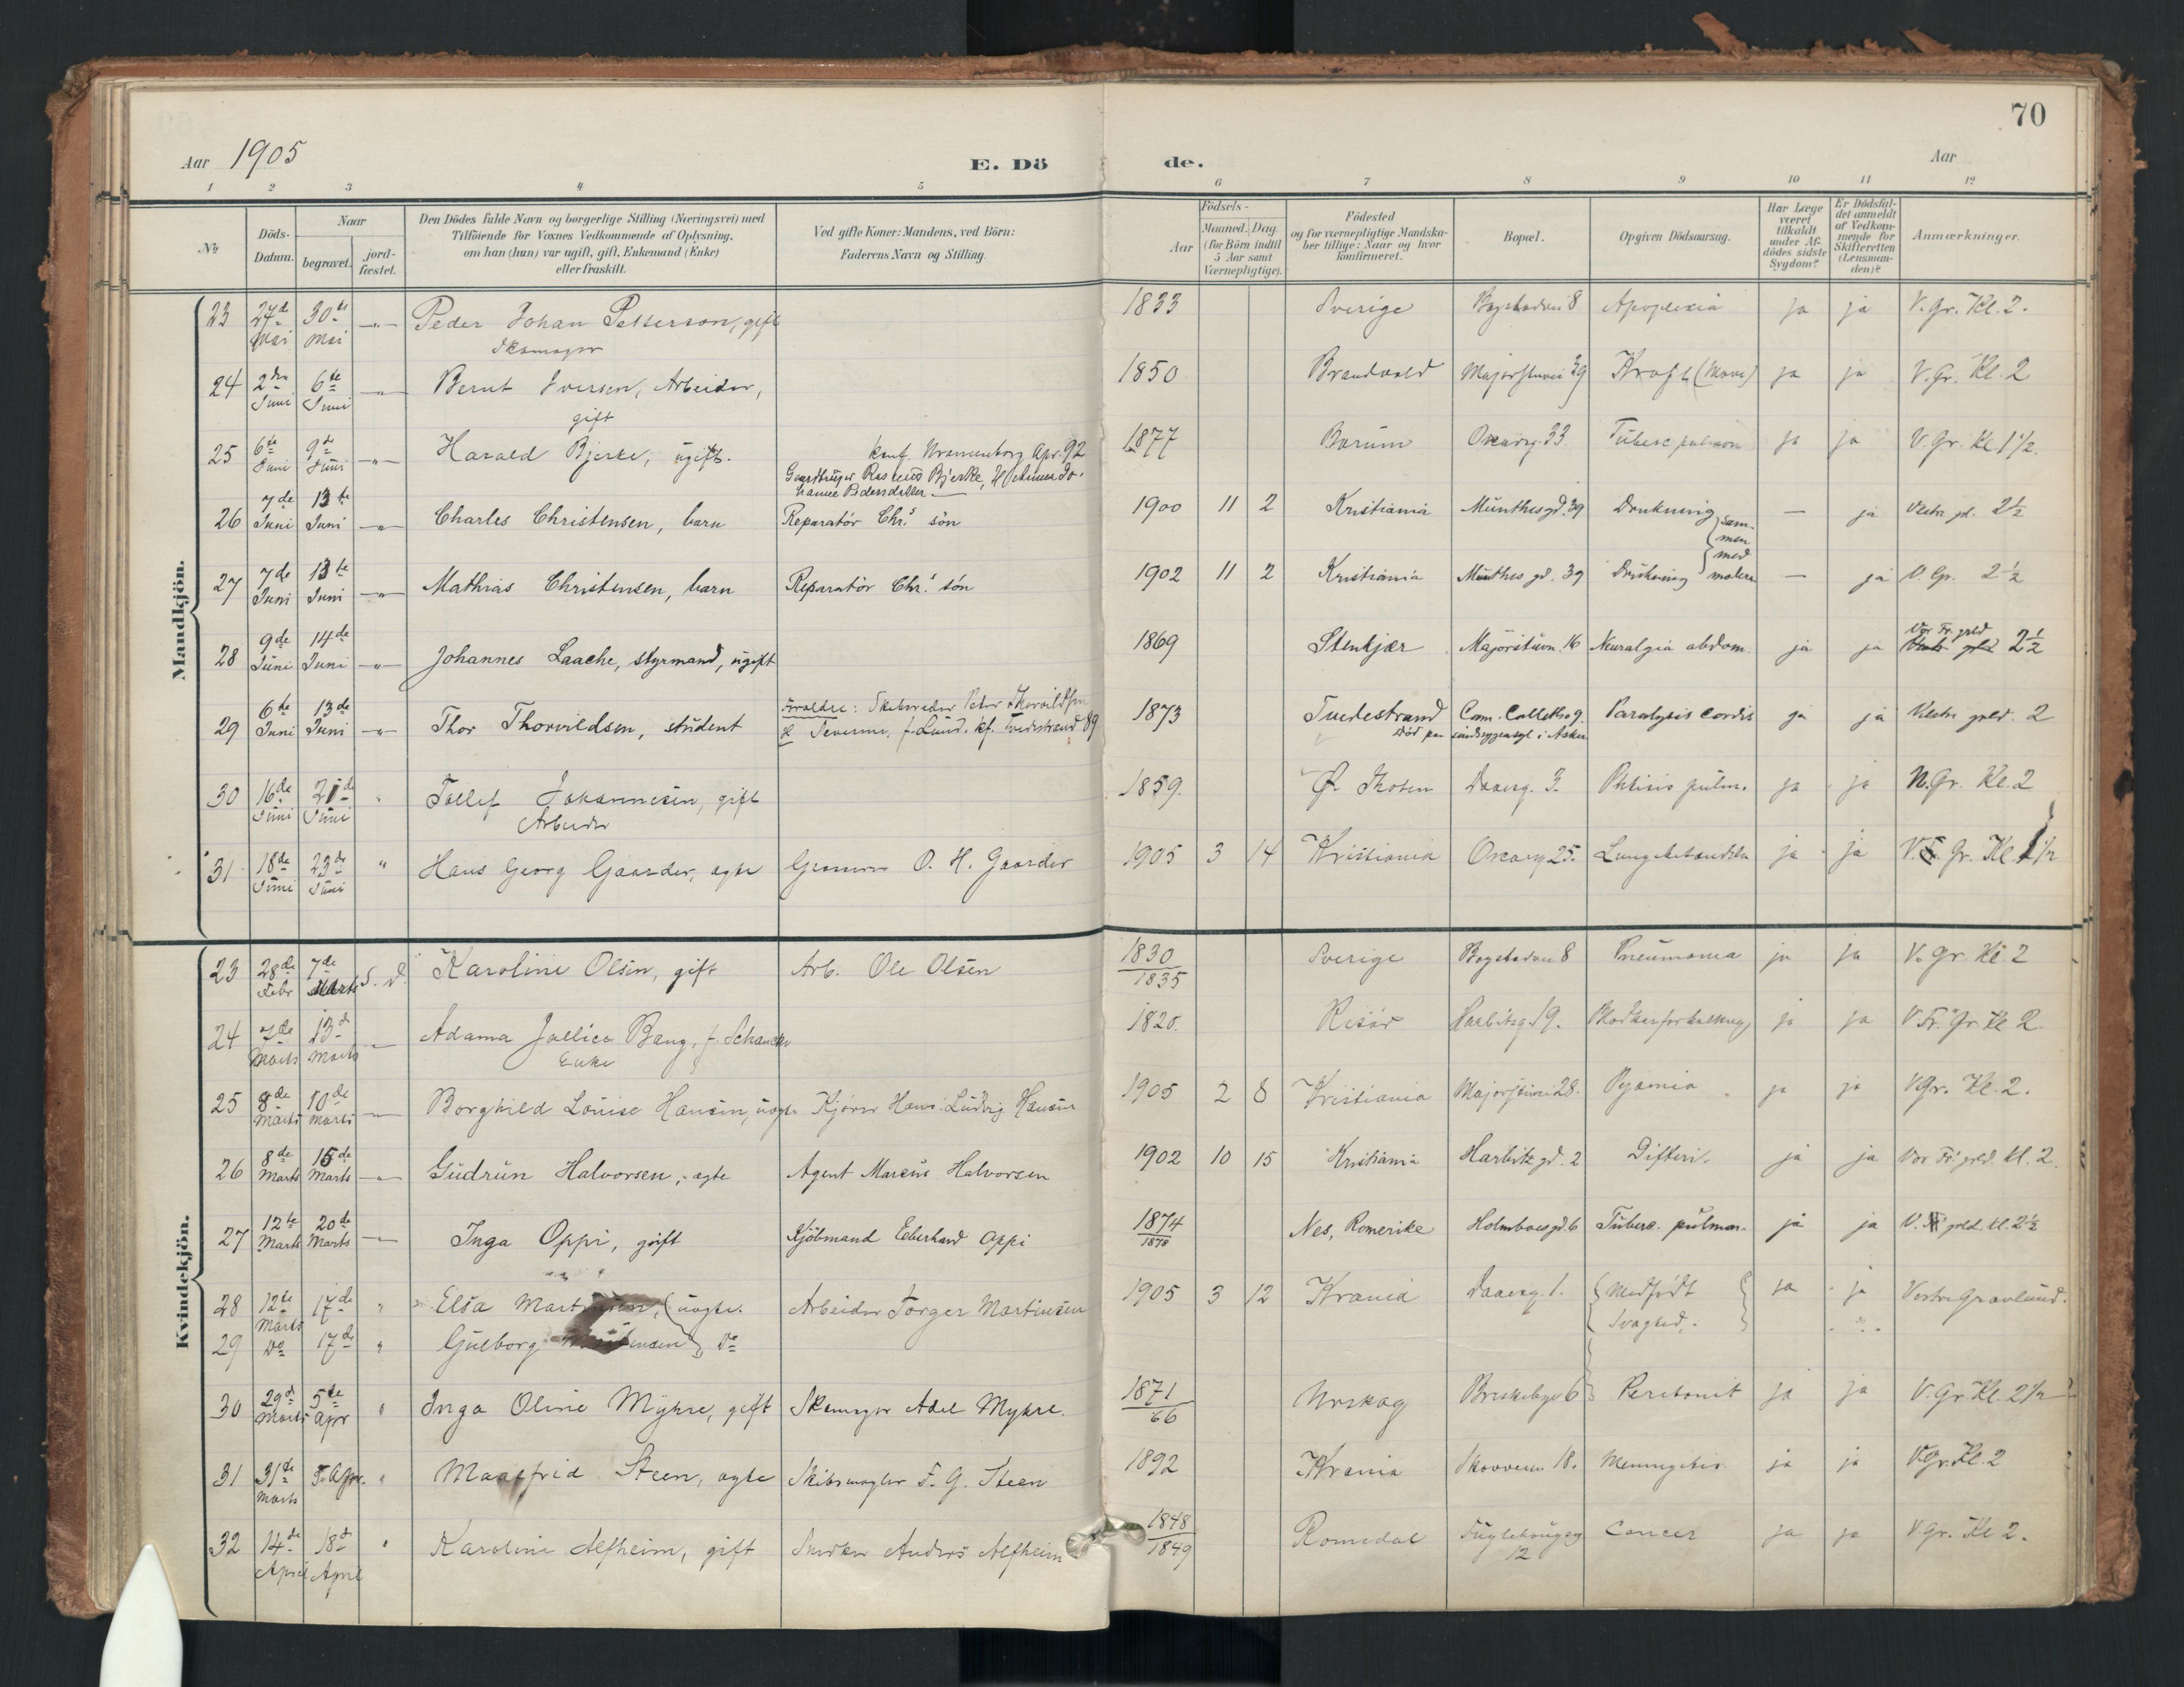 70
Aar 1905 E. Dö de. Aar
1 2 3 4 5 6 7 8 9 10 11 12
№ Döds-Datum. Naar begravet. jord-fæstet. Den Dödes fulde Navn og borgerlige Stilling (Næringsvei) med Tilföiende for Voxnes Vedkommende af Oplysning, om han (hun) var ugift, gift, Enkemand (Enke) eller fraskilt. Ved gifte Koner: Mandens, ved Börn: Faderens Navn og Stilling. Födsels- Aar Maaned. Dag. (for Börn indtil 5 Aar samt Værnepligtige). Födested og for værnepligtige Mandskaber tillige: Naar og hvor konfirmeret. Bopæl. Opgiven Dödsaarsag. Har Læge været tilkaldt under Afdödes sidste Sygdom? Er Dödsfaldet anmeldt af Vedkommende for Skifteretten (Lensmanden)? Anmærkninger.
Mandkjön.
23 27de Mai 30te Mai -"- Peder Johan Petterson, gift Skomager 1833 Sverige Bogstadvei 8 Apoplexia ja ja V. Gr. Kl. 2.
24 2den Juni 6te Juni -"- Bernt Iversen, Arbeider, gift 1850 Brandvold Majorstuvei 39 Kræft (Mave) ja ja V. Gr. Kl. 2
25 6te Juni 9de Juni -"- Harald Bjerke, ugift. konf. Uranienborg Apr. 92 Gaardbruger Bjerke, 1877 Bærum Oscarsg. 33. Tuberc. pulmon ja ja V. Gr. Kl 1 1/2.
26 7de Juni 13te Juni -"- Charles Christensen, barn Reparatör Chr.s sön 1900 11 2 Kristiania Munthesgd. 39 Drukning { sammen med — ja Vestre gl. 2 1/2
27 7de Juni 13te Juni -"- Mathias Christensen, barn Reparatör Chr.s sön 1902 11 2 Kristiania Munthes gd. 39 Drukning moderen — ja V. Gr. 2 1/2
28 9de Juni 14de Juni -"- Johannes Laache, styrmand, ugift 1869 Stenkjær Majorstuvn. 16 Neuralgia abdom. ja ja Vor Fr. grld 2 1/2
29 6te Juni 13de Juni -"- Thor Thorvildsen, student Forældre: Skibsreder Peter Thorvildsen & Severine, f. Lund. kf. Tvedestrand 89 1873 Tvedestrand Cam. Collettsg. Paralysis cordis ja ja Vestre grld. 2
död paa sindssygeasyl i Asker
30 16de Juni 21de Juni " Tollef Johannesen, gift Arbeider 1859. Ø. Thoten Daaesg. 3. Phtisis pulm. ja ja N. Gr. Kl. 2
31 18de Juni 23de Juni " Hans Georg Gaarder, ægte O. H. Gaarder 1905 3 14 Kristiania Oscarsg 25. Lungebetændelse ja ja V. Gr. Kl 1 1/2
Kvindekjön.
23 28de Febr 7de Marts S. D. Karoline Olsen, gift Arb. Ole Olsen 1830 1835 Sverige Bogstadvei 8 Pneumonia ja ja V. Gr. Kl. 2
24 7de Marts 13de Marts -"- Adama Jallica Bang, f. Schancke Enke 1820. Risör Harbitzg. 19. ja ja V Fr. Gr. Kl 2.
25 8de Marts 10de Marts -"- Borghild Louise Hansen, uægte Kjörer Hans Ludvig Hansen 1905 2 8 Kristiania Majorstuvei 28. Pyæmia ja ja V Gr. Kl. 2.
26 8de Marts 15de Marts -"- Gudrun Halvorsen, ægte Agent Marcus Halvorsen 1902 10 15 Kristiania Harbitz gd. 2 Difteri. ja ja Vor Fr. grld. kl. 2.
27 12te Marts 20de Marts -"- Inga Oppi, gift Kjöbmand Eeberhard Oppi 1874 1878 Nes, Romerike Holmboesgd. 6 Tuberc. pulmon. ja ja V. grld. kl. 2 1/2
28 12te Marts 17de " Elsa Martinsen, { uægte. Arbeider Torger Martinsen 1905 3 12 Krania Daaesg 1. { Medfödt Svaghed. } ja ja Vestre Gravlund.
29 Do 17de " Gulborg Martinsen } Do
30 29de Marts 5te Apr " Inga Oline Myhre, gift Skomager Adel Myhre. 1871 66 Urskog Briskebyv 6 Peritonit ja ja V. Gr Kl. 2 1/2
31 31de Marts 5. Apr. " Maagfrid Steen, ægte Skibsmægler F. G. Steen 1892 Krania Skovveien 18. Meningitis ja ja V Gr. Kl. 2
32 14de April 18de April " Karoline Alfheim, gift Snedker Anders Alfheim 1848 1849 Romedal Fuglehaugsg 12 Cancer ja ja V. Gr. Kl 2.